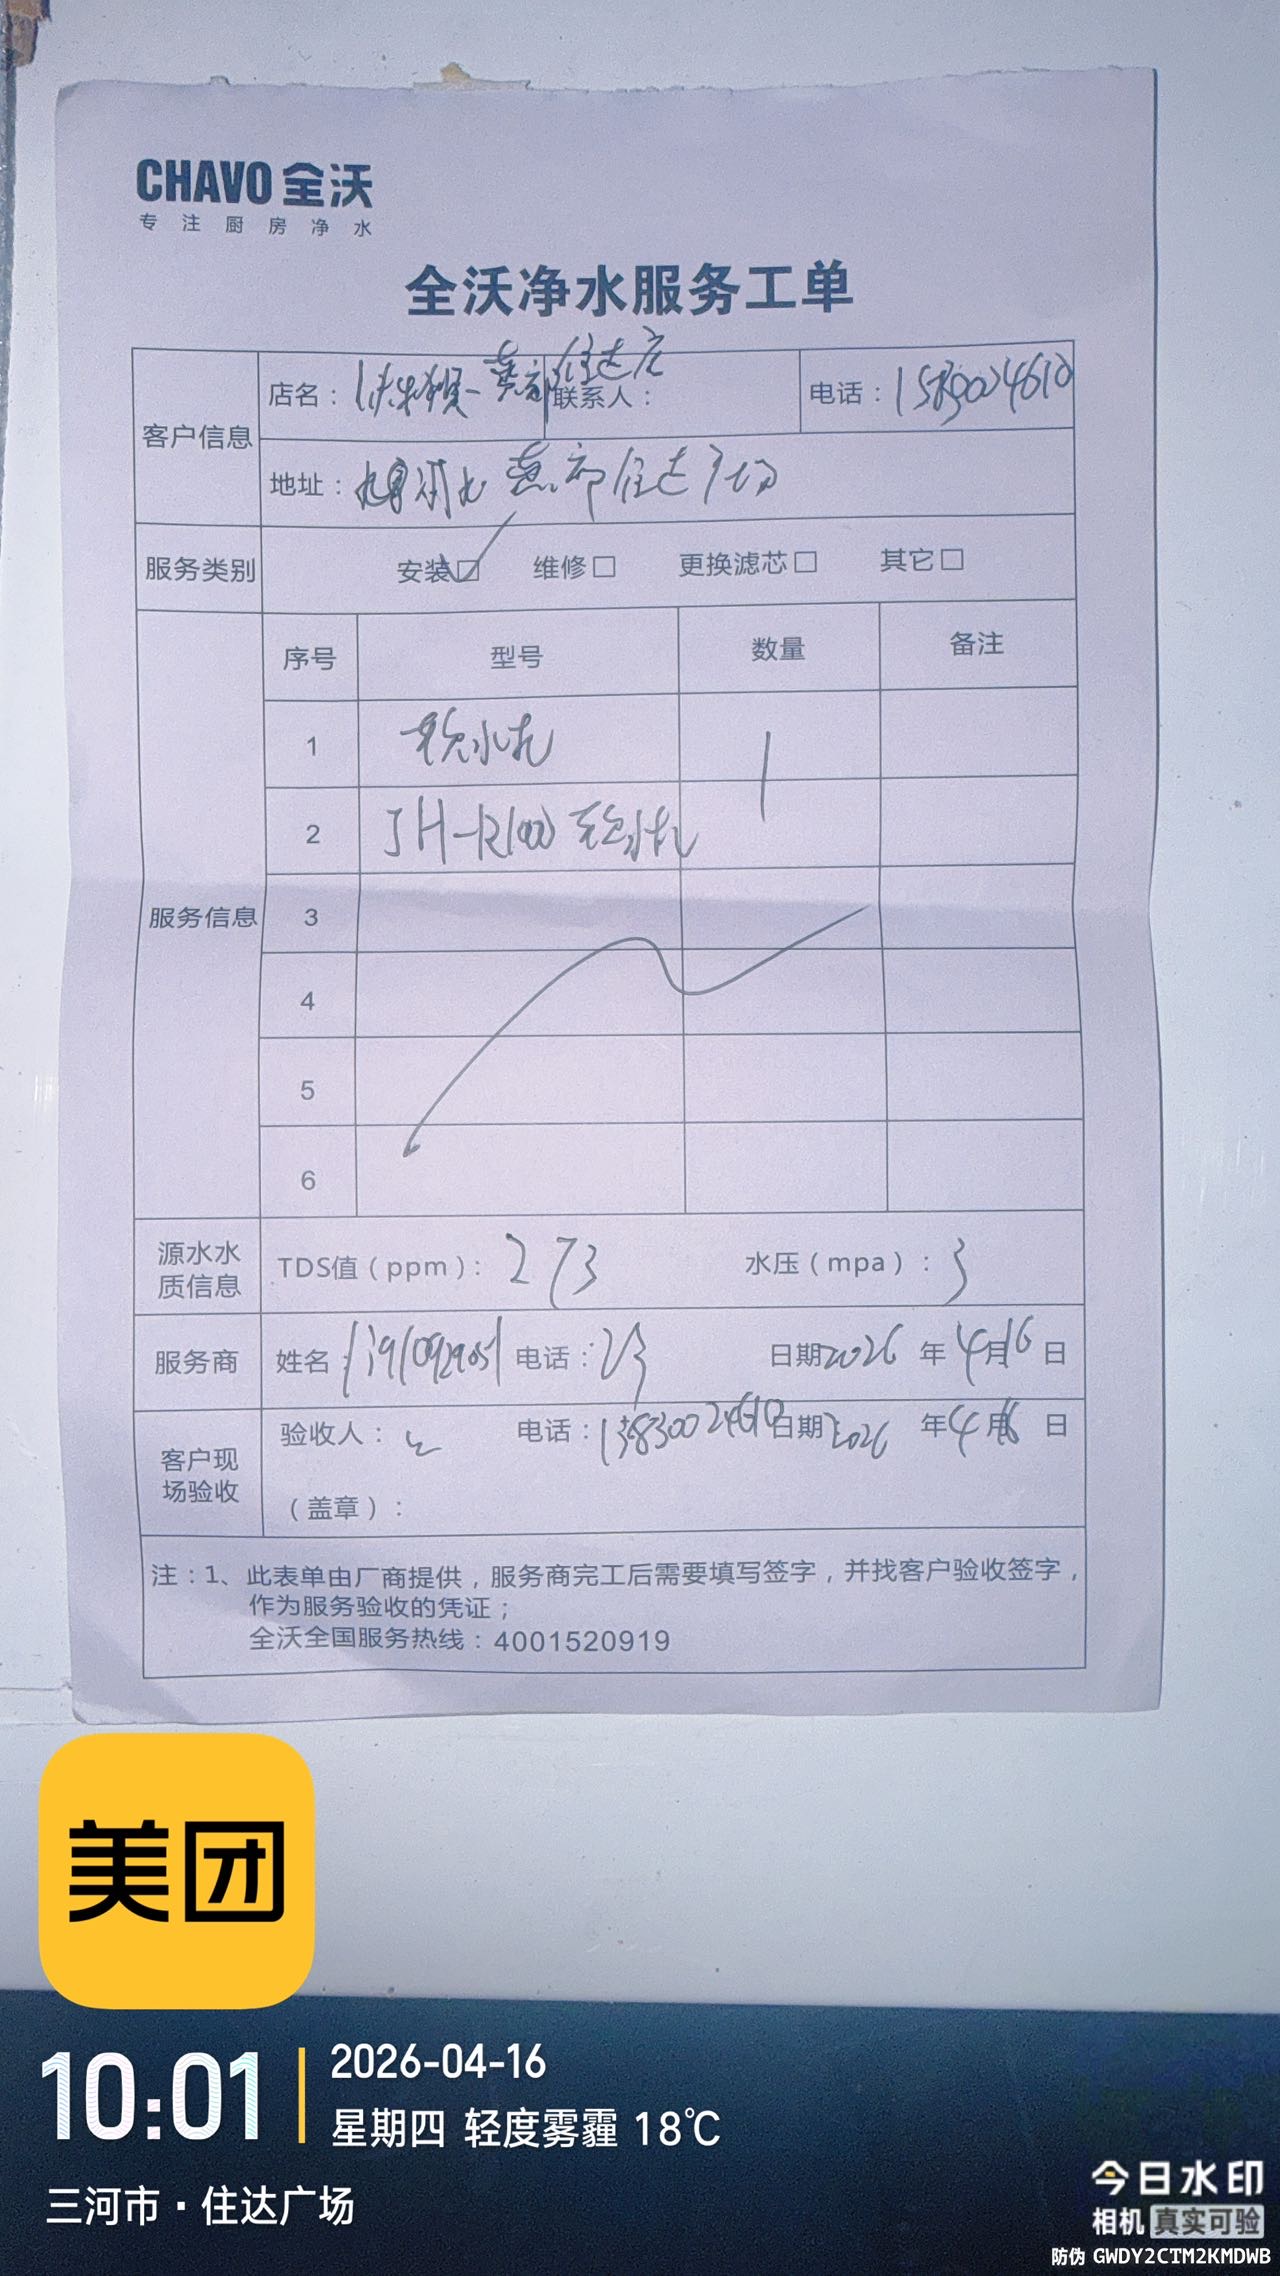 CHAVO 全沃
专注厨房净水
全沃净水服务工单
客户信息 店名： 燕郊住达店 联系人： 电话：
地址： 燕郊住达广场
服务类别 安装☑ 维修□ 更换滤芯□ 其它□
服务信息 序号 型号 数量 备注
1 软水机 1
2 JH-R1000 软水机
3
4
5
6
源水水质信息 TDS值（ppm）：273 水压（mpa）：3
服务商 姓名： 电话： 日期2026年4月16日
客户现场验收 验收人： 电话：13383002460 日期2026年4月16日
（盖章）：
注：1、此表单由厂商提供，服务商完工后需要填写签字，并找客户验收签字，
作为服务验收的凭证；
全沃全国服务热线：4001520919
美团
10:01 2026-04-16
星期四 轻度雾霾 18℃
三河市·住达广场
今日水印
相机 真实可验
防伪 GWDY2CTM2KMDWB